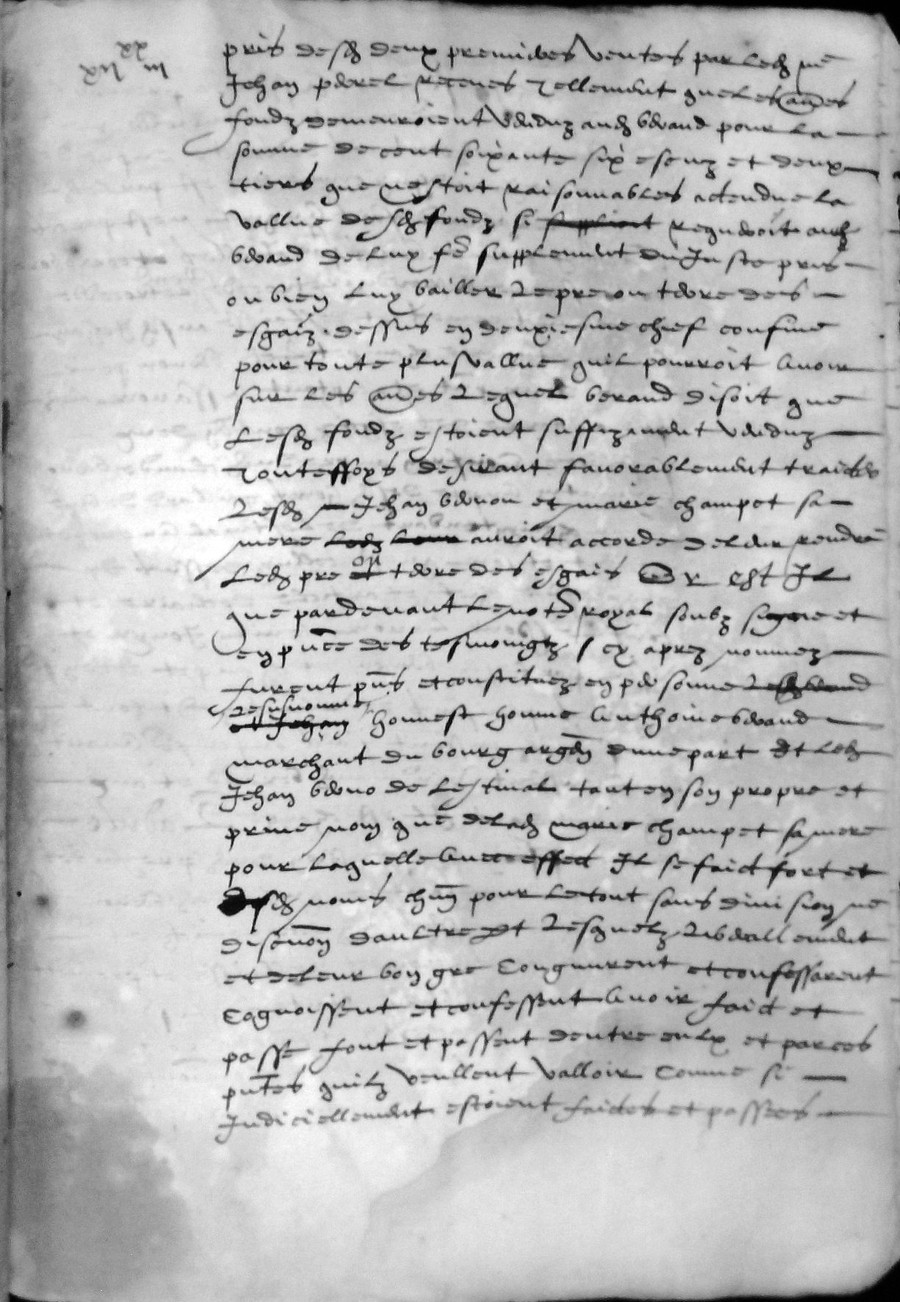 pris desd deux premieres ventes par led me
Jehan perel receues tellement que les
fondz demeuroient venduz aud beraud pour la
somme de cent soixante six escuz et deux
tiers que nestoit raisonnables actendue la
vallue desd fondz si requeroit aud
beraud de luy fe supplement du juste pris
ou bien luy bailler le pre ou terre des
esgaiz dessus en deuxiesme chef confine
pour toute plus vallue quil pourroit avoir
sur les lequel beraud disoit que
lesd fondz estoient suffizament venduz
touteffoys desirant favorablement traicter
lesd Jehan et marie champet sa
mere auroit accorde de leur rendre
led pre ou terre des esgais Or est il
que pardevant le note royal soubz signe et
en pnce des tesmoingtz icy aprez nommez
furent pns et constituez en personne
lesusnomme
honnest homme Anthoine beraud
marchant du bourg argen dune part Et led
Jehan de lestival tant en son propre et
prive nom que de lad marie champet sa mere
pour laquelle a cet effect il se faict fort et
esd noms chun pour le tout sans division ne
discution daultre Et lesquelz liberallement
et de leur bon gre congneurent et confessarent
cognoissent et confessent avoir faict et
passe font et passent dentre eulx et par ces
pntes quilz veullent valloir comme si
judiciellement estoient faictes et passees